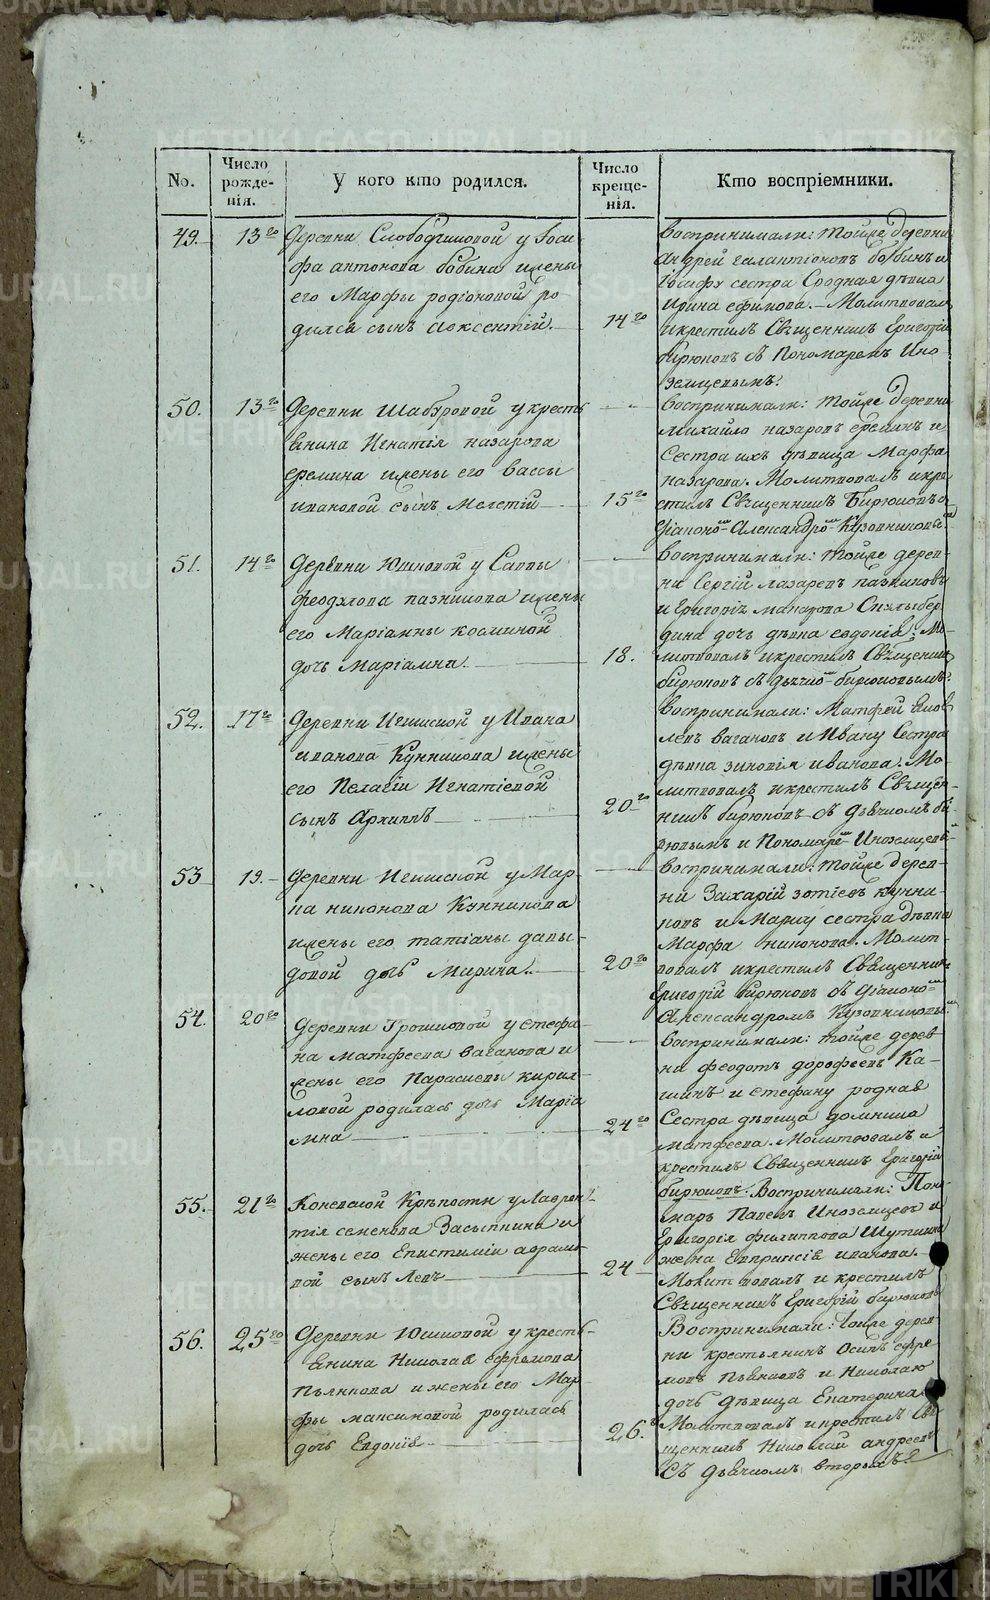 No.
Число рожде- нія.
У кого кто родился.
Число креще- нія.
Кто воспріемники.
49. 13го
Деревни Слободчиковой у Іоси-
фа антонова бобина и жены
его Марфы родіоновой ро
дился сынъ Авксентій.
14го
воспринимали: тойже деревни
андрей галактіоновъ бобинъ и
Іосифу сестра Сродная дѣвка
ирина ефимова. Молитвовалъ
и крестилъ Священникъ Григорій
бирюковъ съ Пономаремъ Ино
земцевымъ.
50. 13го
Деревни Шабуровой у кресть
янина Игнатія назарова
еремина и жены его вассы
ивановой сынъ Мелетій
15го
воспринимали: тойже деревни
михайло назаровъ ереминъ и
Сестра ихъ дѣвица Марфа
назарова. Молитвовалъ и кре
стилъ Священникъ Бирюковъ с
діакономъ Александромъ Кузовниковы
51. 14го
Деревни Юшковой у Саввы
феодулова пазникова и жены
его Маріанны косминой
дочь Маріамна.
18.
воспринимали: тойже дерев-
ни Сергій лазаревъ пазниковъ
и Григорія макарова
дочь дѣвка евдокія. Мо-
литвовалъ и крестилъ Священник
бирюковъ съ дьячкомъ бирюковымъ.
52. 17го
Деревни Игишской у Ивана
иванова Кунникова и жены
его Пелагіи Игнатіевой
сынъ Архиппъ
20го
воспринимали: Матфей яков
левъ вагановъ и Ивану Сестра
дѣвка зиновія иванова. Мо-
литвовалъ и крестилъ Священ-
никъ бирюковъ съ дьячкомъ би-
рюковымъ и Пономаремъ Иноземцевы
53 19.
Деревни Игишской у Мар-
ка никонова Кунникова
и жены его татіаны давы-
довой дочь Марина.
20го
воспринимали: тойже дерев-
ни Захарій зотіевъ кунни-
ковъ и Марку сестра дѣвка
Марфа никонова. Молит-
вовалъ и крестилъ Священник
Григорій бирюковъ съ діаконо
Александромъ Кузовниковы
54. 20го
Деревни Грошковой у стефа-
на матфеева ваганова и
жены его Парасковьи кирил-
ловой родилась дочь Маріа
мна
24го
воспринимали: тойже дерев
ни феодотъ дорофеевъ Ка-
шинъ и стефану родная
Сестра дѣвица домника
матфеева. Молитвовалъ и
крестилъ Священникъ Григорій
бирюковъ.
55. 21го
Коневской Крѣпости у лаврен-
тія семенова Засыпкина и
жены его Епистиміи аврамо
вой сынъ Левъ
24
Воспринимали: Поно
марь Павелъ Иноземцевъ и
Григорія филиппова
жена Евпраксія иванова.
Молитвовалъ и крестилъ
Священникъ Григорій бирюковъ
56. 25го
Деревни Юшковой у кресть-
янина Николая ефремова
Пьянкова и жены его Мар-
фы максимовой родилась
дочь Евдокія
26.
Воспринимали: тойже дерев
ни крестьянинъ Осипъ ефре
мовъ Пьянковъ и Николаю
дочь дѣвица Екатерина
Молитвовалъ и крестилъ Свя
щенникъ Николай андреевъ
Съ дьячкомъ вторыхъ.
METRIKI.GASO-URAL.RU